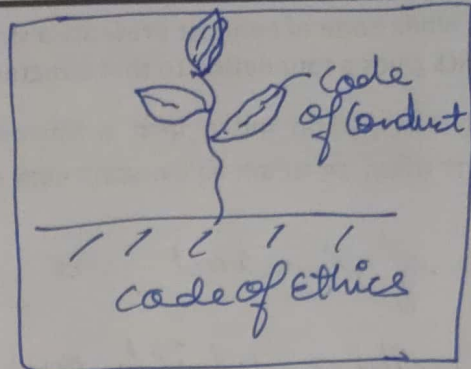 Code
of Conduct
Code of Ethics